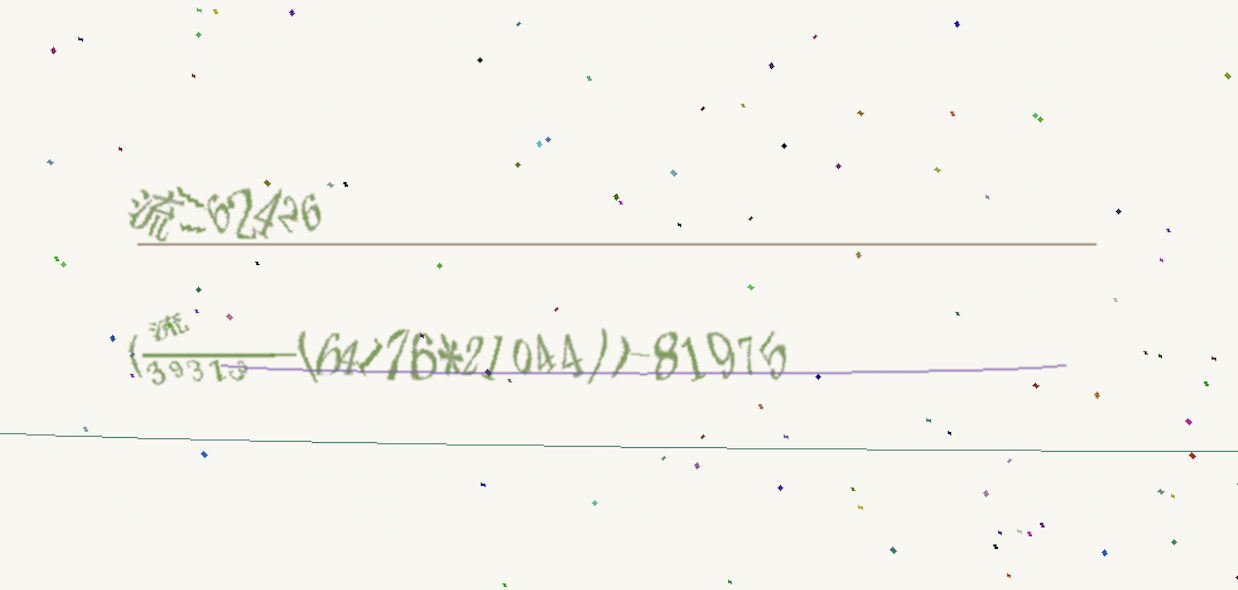 流=62426
(流/39313(64/76*21044))-81975